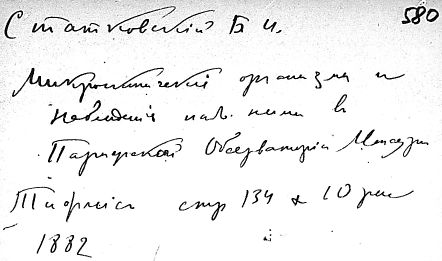 Статковский Б И. 580
Микроскопические организмы и
наблюдения над ними в
Парижской Обсерваторiи Монсури
Тифлис стр 134 & 10 рис
1882